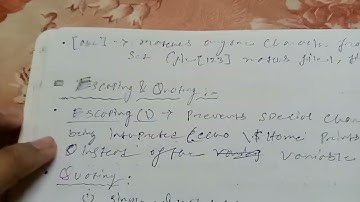 • [abc] → matches any one character fro
set (file[123] matches file1, f
= Escaping & Quoting :-
• Escaping (\) → Prevents special char
being interpreted (echo \$Home prints
instead of the variable
• Quoting :
i) single